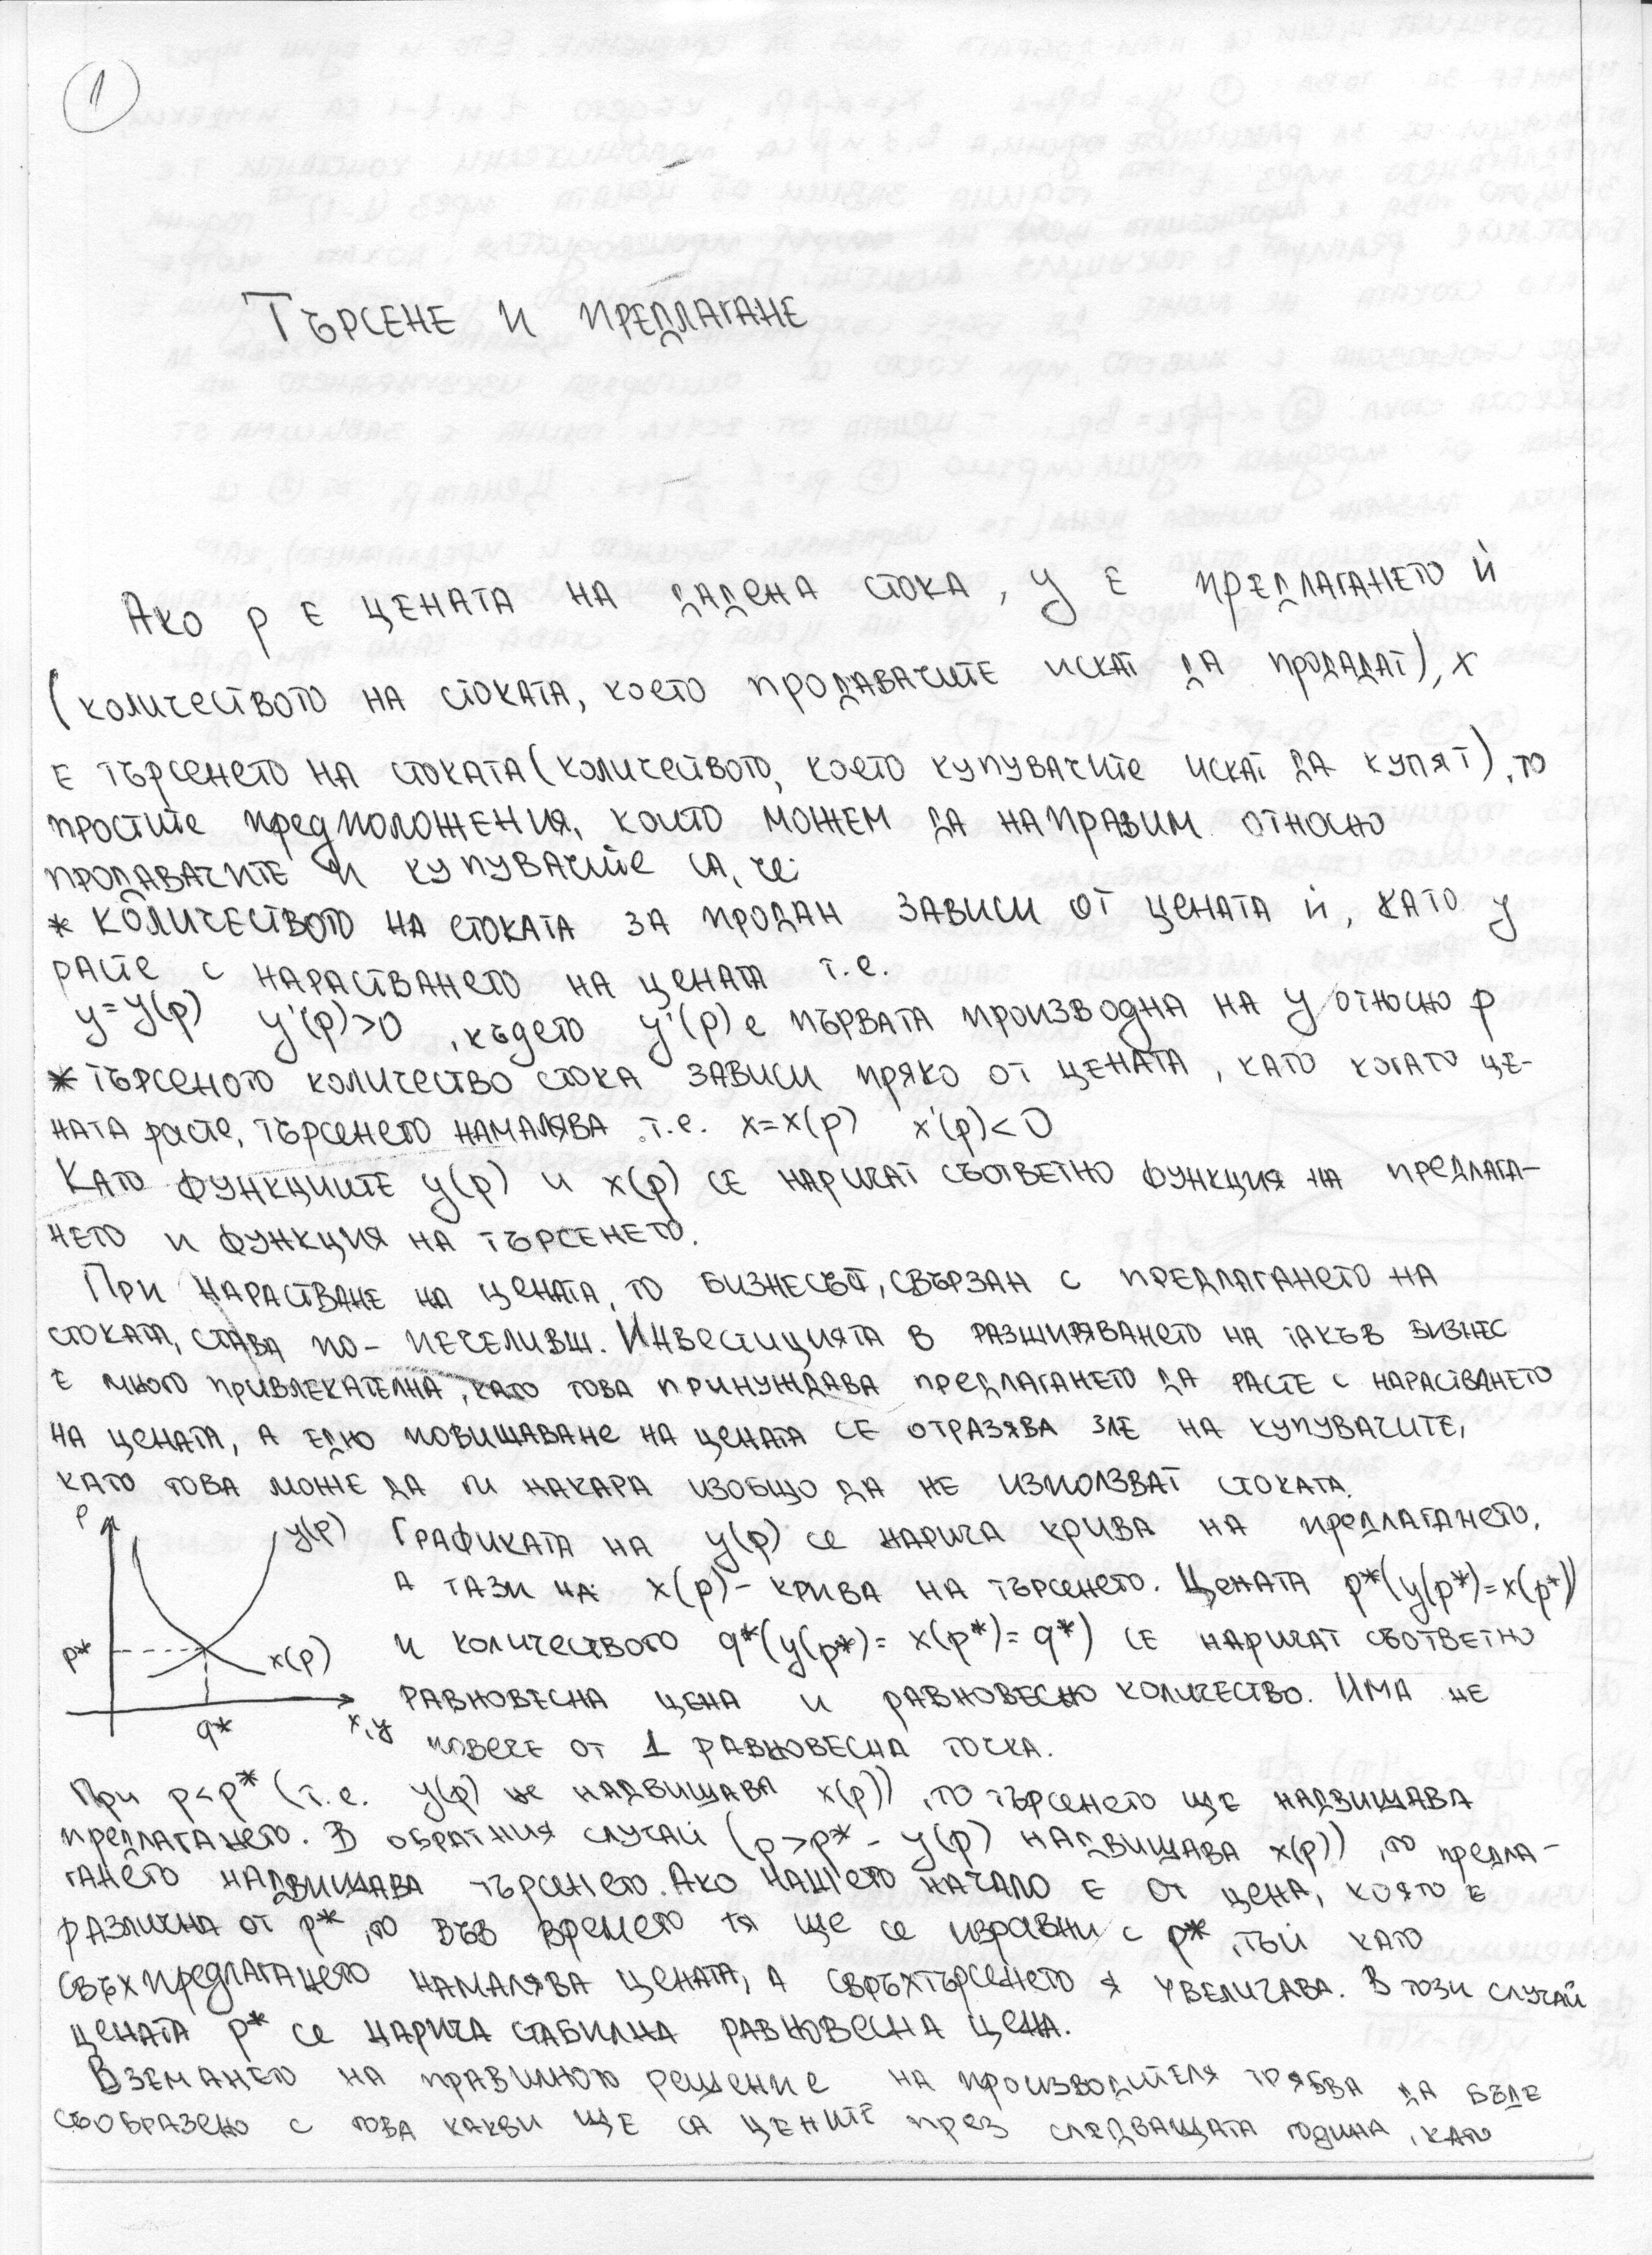 1
Търсене и предлагане
Ако p е цената на дадена стока, y е предлагането ѝ
(количеството на стоката, което продавачите искат да продадат), x
е търсенето на стоката (количеството, което купувачите искат да купят), то
простите предположения, които можем да направим относно
продавачите и купувачите са, че:
* количеството на стоката за продан зависи от цената ѝ, като y
расте с нарастването на цената т.е.
y=y(p) y'(p)>0 , където y'(p) е първата производна на y относно p
* търсеното количество стока зависи пряко от цената, като когато це-
ната расте, търсенето намалява т.е. x=x(p) x'(p)<0
Като функциите y(p) и x(p) се наричат съответно функция на предлага-
нето и функция на търсенето.
При нарастване на цената, то бизнесът, свързан с предлагането на
стоката, става по-печеливш. Инвестицията в разширяването на такъв бизнес
е много привлекателна, като това принуждава предлагането да расте с нарастването
на цената, а едно повишаване на цената се отразява зле на купувачите,
като това може да ги накара изобщо да не използват стоката.
p y(p) x(p) p* q* x,y
Графиката на y(p) се нарича крива на предлагането,
а тази на x(p) - крива на търсенето. Цената p*(y(p*)=x(p*))
и количеството q*(y(p*)= x(p*)= q*) се наричат съответно
равновесна цена и равновесно количество. Има не
повече от 1 равновесна точка.
При p<p* (т.е. y(p) не надвишава x(p)), то търсенето ще надвишава
предлагането. В обратния случай (p>p* - y(p) надвишава x(p)), то предла-
гането надвишава търсенето. Ако нашето начало е от цена, която е
различна от p*, то във времето тя ще се изравни с p*, тъй като
свъхпредлагането намалява цената, а свръхтърсенето я увеличава. В този случай
цената p* се нарича стабилна равновесна цена.
Вземането на правилното решение на производителя трябва да бъде
съобразено с това какви ще са цените през следващата година, като